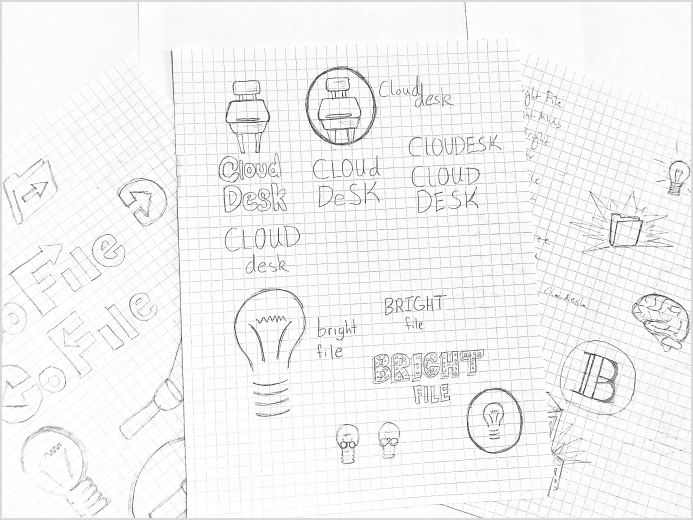 Cloud
desk
Cloud
Desk
CLOUd
DeSK
CLOUDESK
CLOUD
DESK
CLOUD
desk
bright
file
BRIGHT
file
BRIGHT
FILE
File
File
B